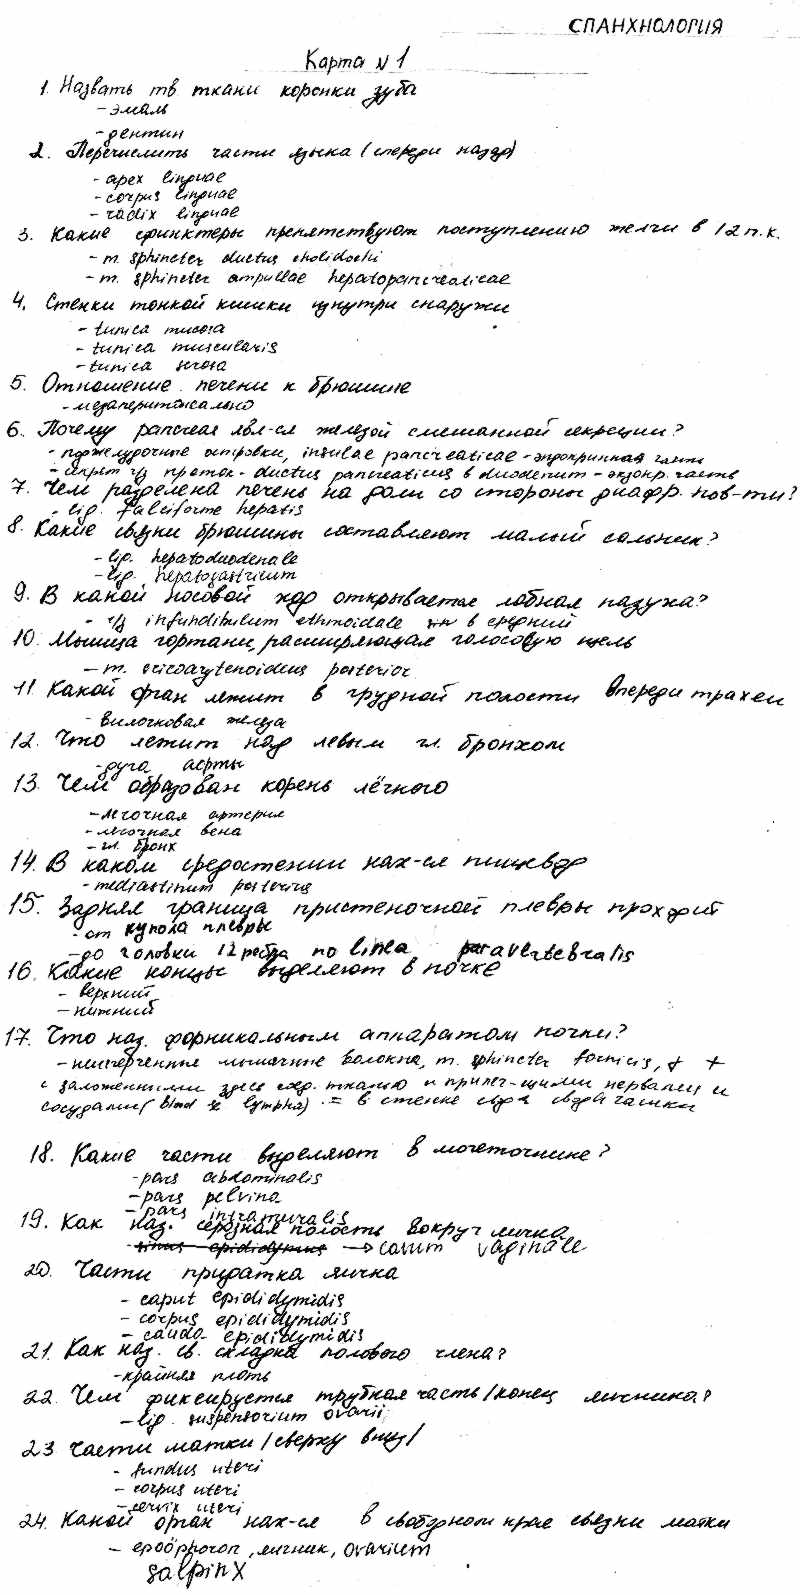 СПАНХНОЛОГИЯ
Карта N 1
1. Назвать тв ткани коронки зуба
- эмаль
- дентин
2. Перечислить части языка (спереди назад)
- apex linguae
- corpus linguae
- radix linguae
3. Какие сфинктеры препятствуют поступлению желчи в 12 п.к.
- m. sphincter ductus choledochi
- m. sphincter ampullae hepatopancreaticae
4. Стенки тонкой кишки изнутри снаружи
- tunica mucosa
- tunica muscularis
- tunica serosa
5. Отношение печени к брюшине
- мезаперитонеально
6. Почему pancreas явл-ся железой смешанной секреции?
- поджелудочные островки, insulae pancreaticae - эндокринная часть
- секрет ч/з проток - ductus pancreaticus в duodenum - экзокр. часть
7. Чем разделена печень на доли со стороны диафр. пов-ти?
- lig. falciforme hepatis
8. Какие связки брюшины составляют малый сальник?
- lig. hepatoduodenale
- lig. hepatogastricum
9. В какой носовой ход открывается лобная пазуха?
- ч/з infundibulum ethmoidale в средний
10. Мышца гортани, расширяющая голосовую щель
- m. cricoarytenoideus posterior
11. Какой орган лежит в грудной полости впереди трахеи
- вилочковая железа
12. Что лежит над левым гл. бронхом
- дуга аорты
13. Чем образован корень лёгкого
- легочная артерия
- легочная вена
- гл. бронх
14. В каком средостении нах-ся пищевод
- mediastinum posterius
15. Задняя граница пристеночной плевры проходит
- от купола плевры
- до головки 12 ребра по linea paravertebralis
16. Какие концы выделяют в почке
- верхний
- нижний
17. Что наз. форникальным аппаратом почки?
- неисчерченные мышечные волокна, m. sphincter fornicis, + +
с заложенными здесь соед. тканью и прилег-щими нервами и
сосудами (blood & lympha) = в стенке свода чашки
18. Какие части выделяют в мочеточнике?
- pars abdominalis
- pars pelvina
- pars intramuralis
19. Как наз. серозная полость вокруг яичка
sinus epididymus → cavum vaginale
20. Части придатка яичка
- caput epididymidis
- corpus epididymidis
- cauda epididymidis
21. Как наз. св. складка полового члена?
- крайняя плоть
22. Чем фиксируется трубная часть/конец яичника?
- lig. suspensorium ovarii
23 Части матки / сверху вниз/
- fundus uteri
- corpus uteri
- cervix uteri
24. Какой орган нах-ся в свободном крае связки матки
- epoöphoron, яичник, ovarium
salpinx